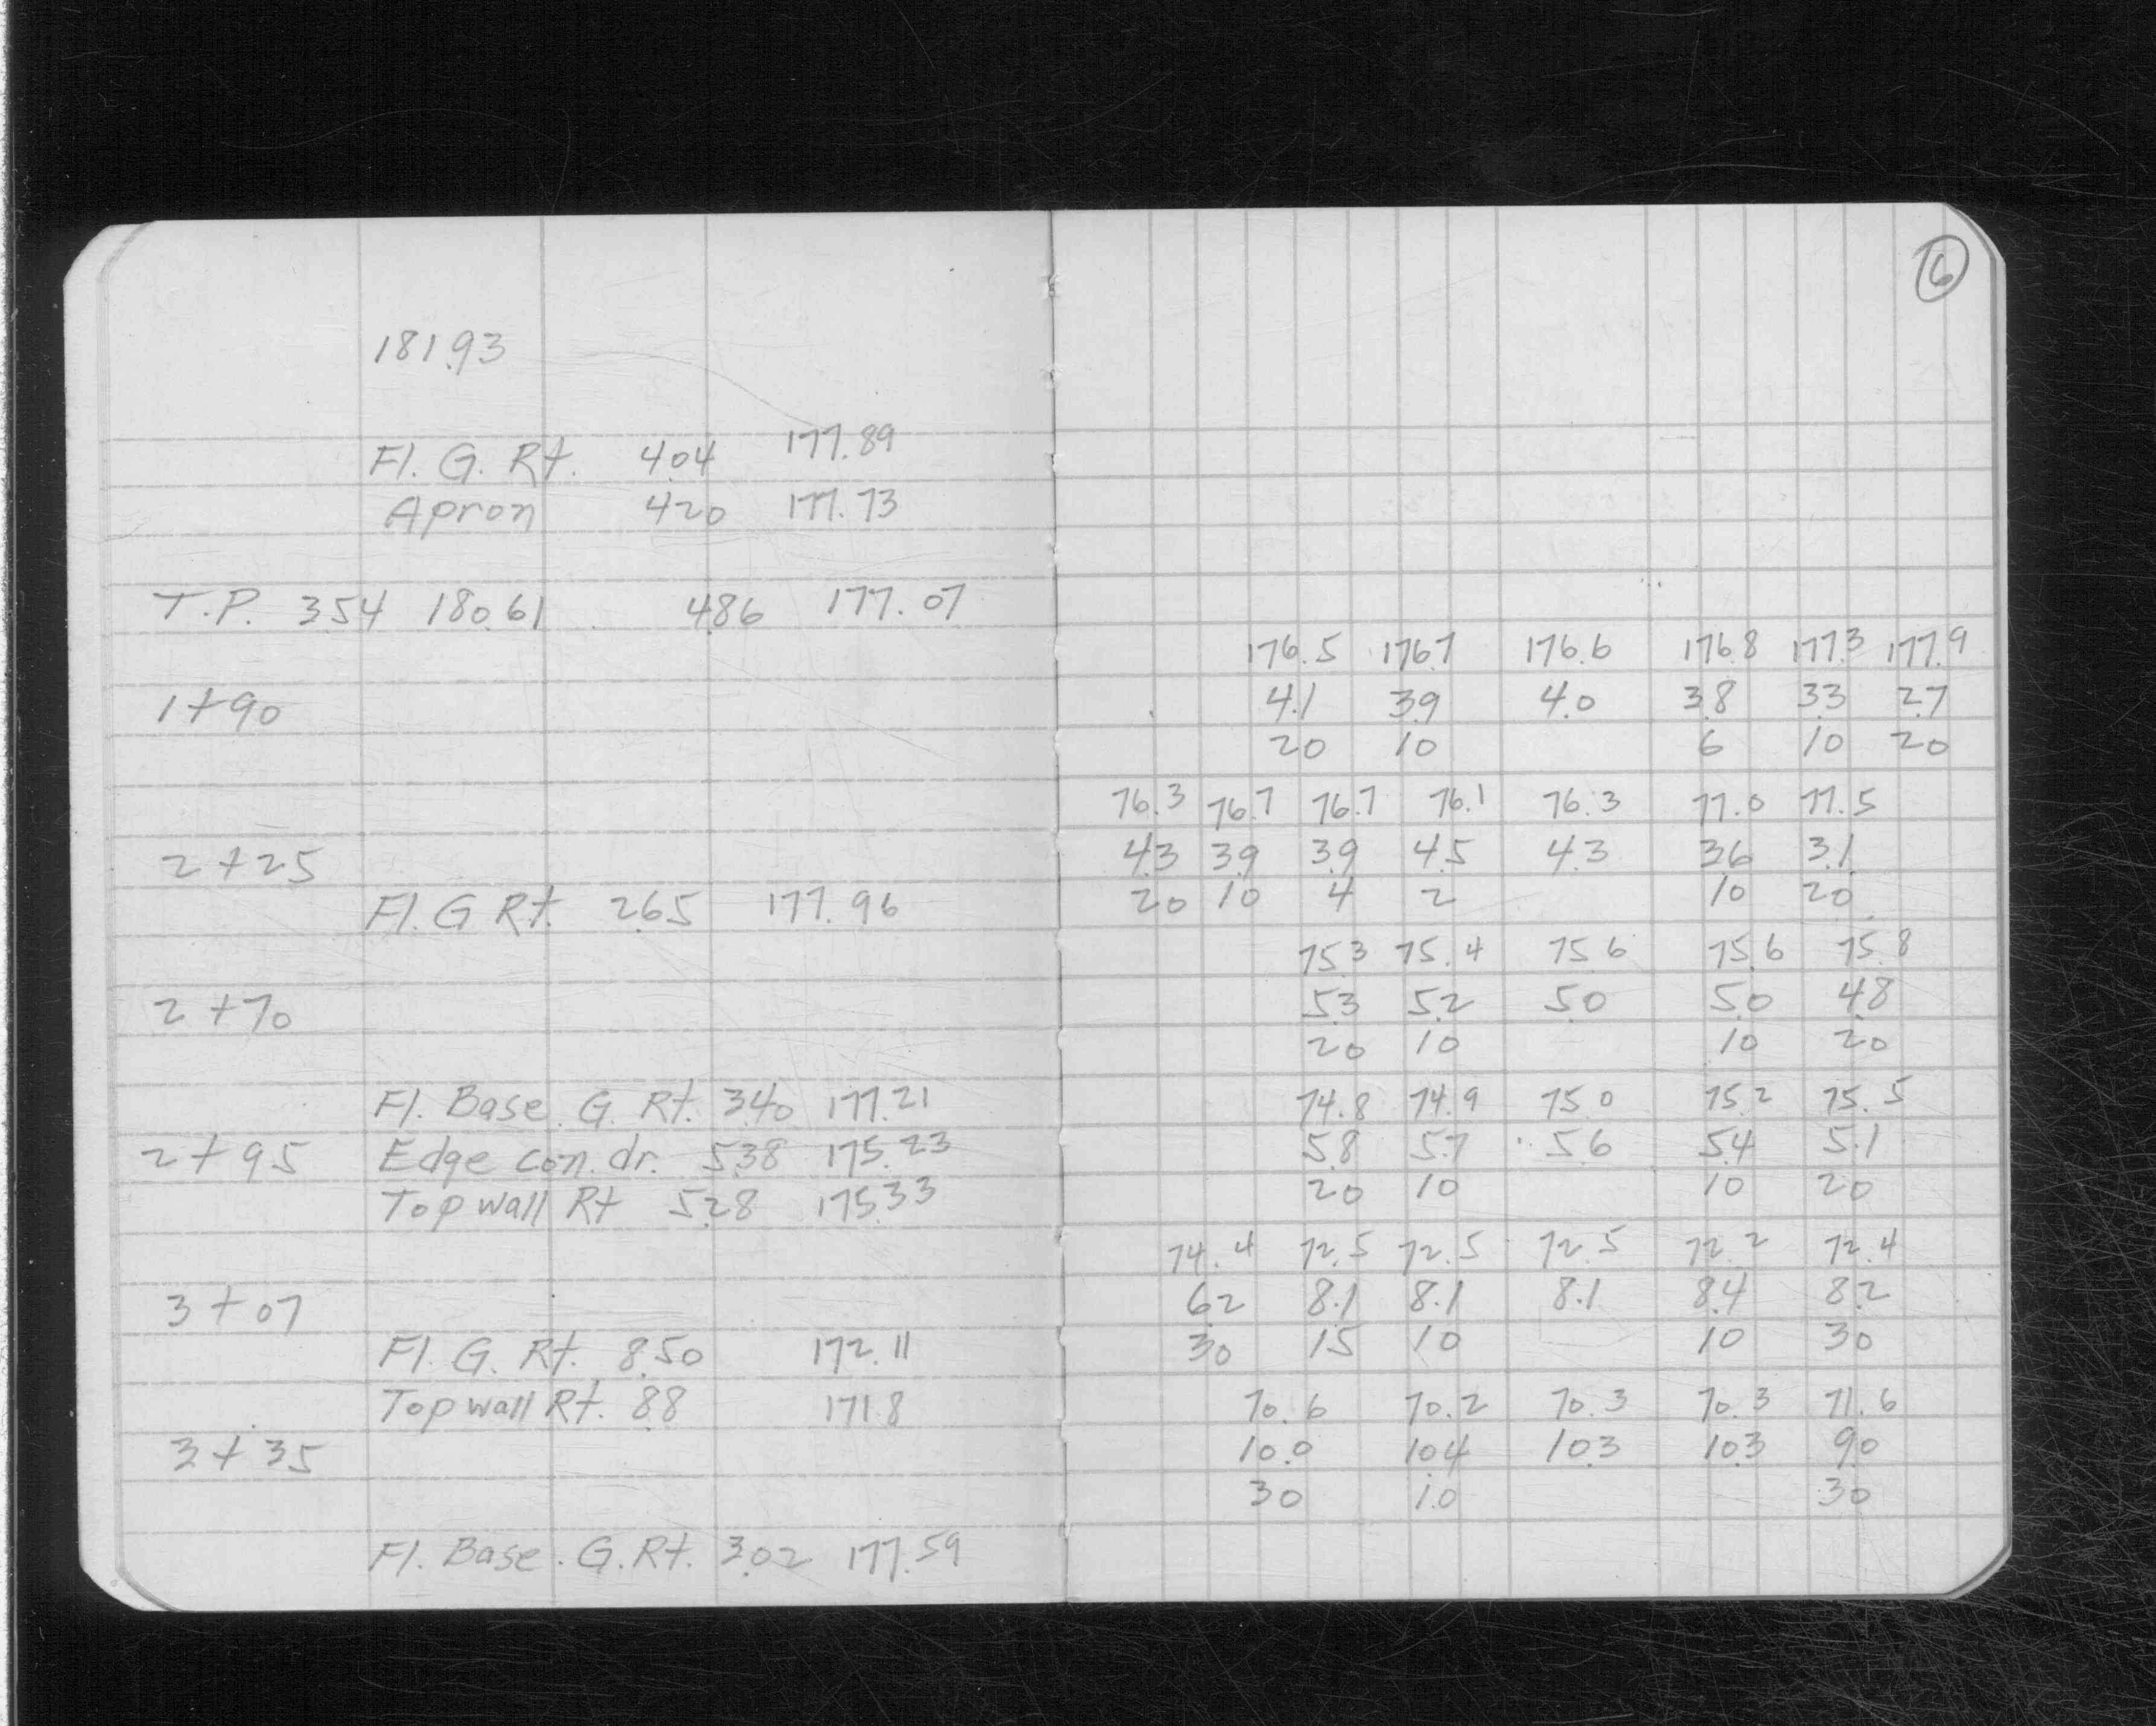 6
181.93
Fl. G. Rt. 4.04 177.89
Apron 4.20 177.73
T.P. 3.54 180.61 4.86 177.07
176.5 176.7 176.6 176.8 177.3 177.9
1+90 4.1 3.9 4.0 3.8 3.3 2.7
20 10 6 10 20
76.3 76.7 76.7 76.1 76.3 77.0 77.5
2+25 4.3 3.9 3.9 4.5 4.3 3.6 3.1
Fl. G Rt. 2.65 177.96 20 10 4 2 10 20
75.3 75.4 75.6 75.6 75.8
2+70 5.3 5.2 5.0 5.0 4.8
20 10 10 20
Fl. Base. G. Rt. 3.40 177.21 74.8 74.9 75.0 75.2 75.5
2+95 Edge con. dr. 5.38 175.23 5.8 5.7 5.6 5.4 5.1
Top wall Rt 5.28 175.33 20 10 10 20
74.4 72.5 72.5 72.5 72.2 72.4
3+07 6.2 8.1 8.1 8.1 8.4 8.2
Fl. G. Rt. 8.50 172.11 30 15 10 10 30
Top wall Rt. 8.8 171.8 70.6 70.2 70.3 70.3 71.6
3+35 10.0 10.4 10.3 10.3 9.0
30 10 30
Fl. Base. G. Rt. 3.02 177.59